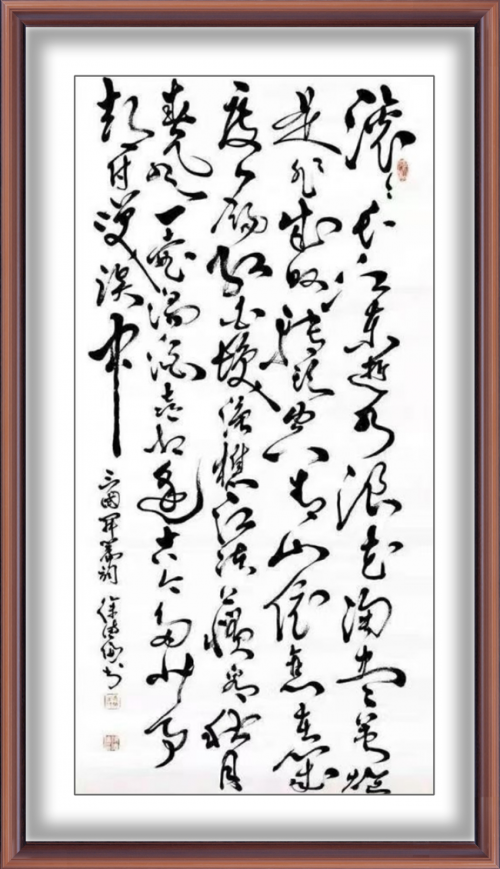 滚滚长江东逝水浪花淘尽英雄
是非成败转头空青山依旧在几
度夕阳红白发渔樵江渚上惯看秋月
春风一壶浊酒喜相逢古今多少事
都付笑谈中
三國开幕词 徐